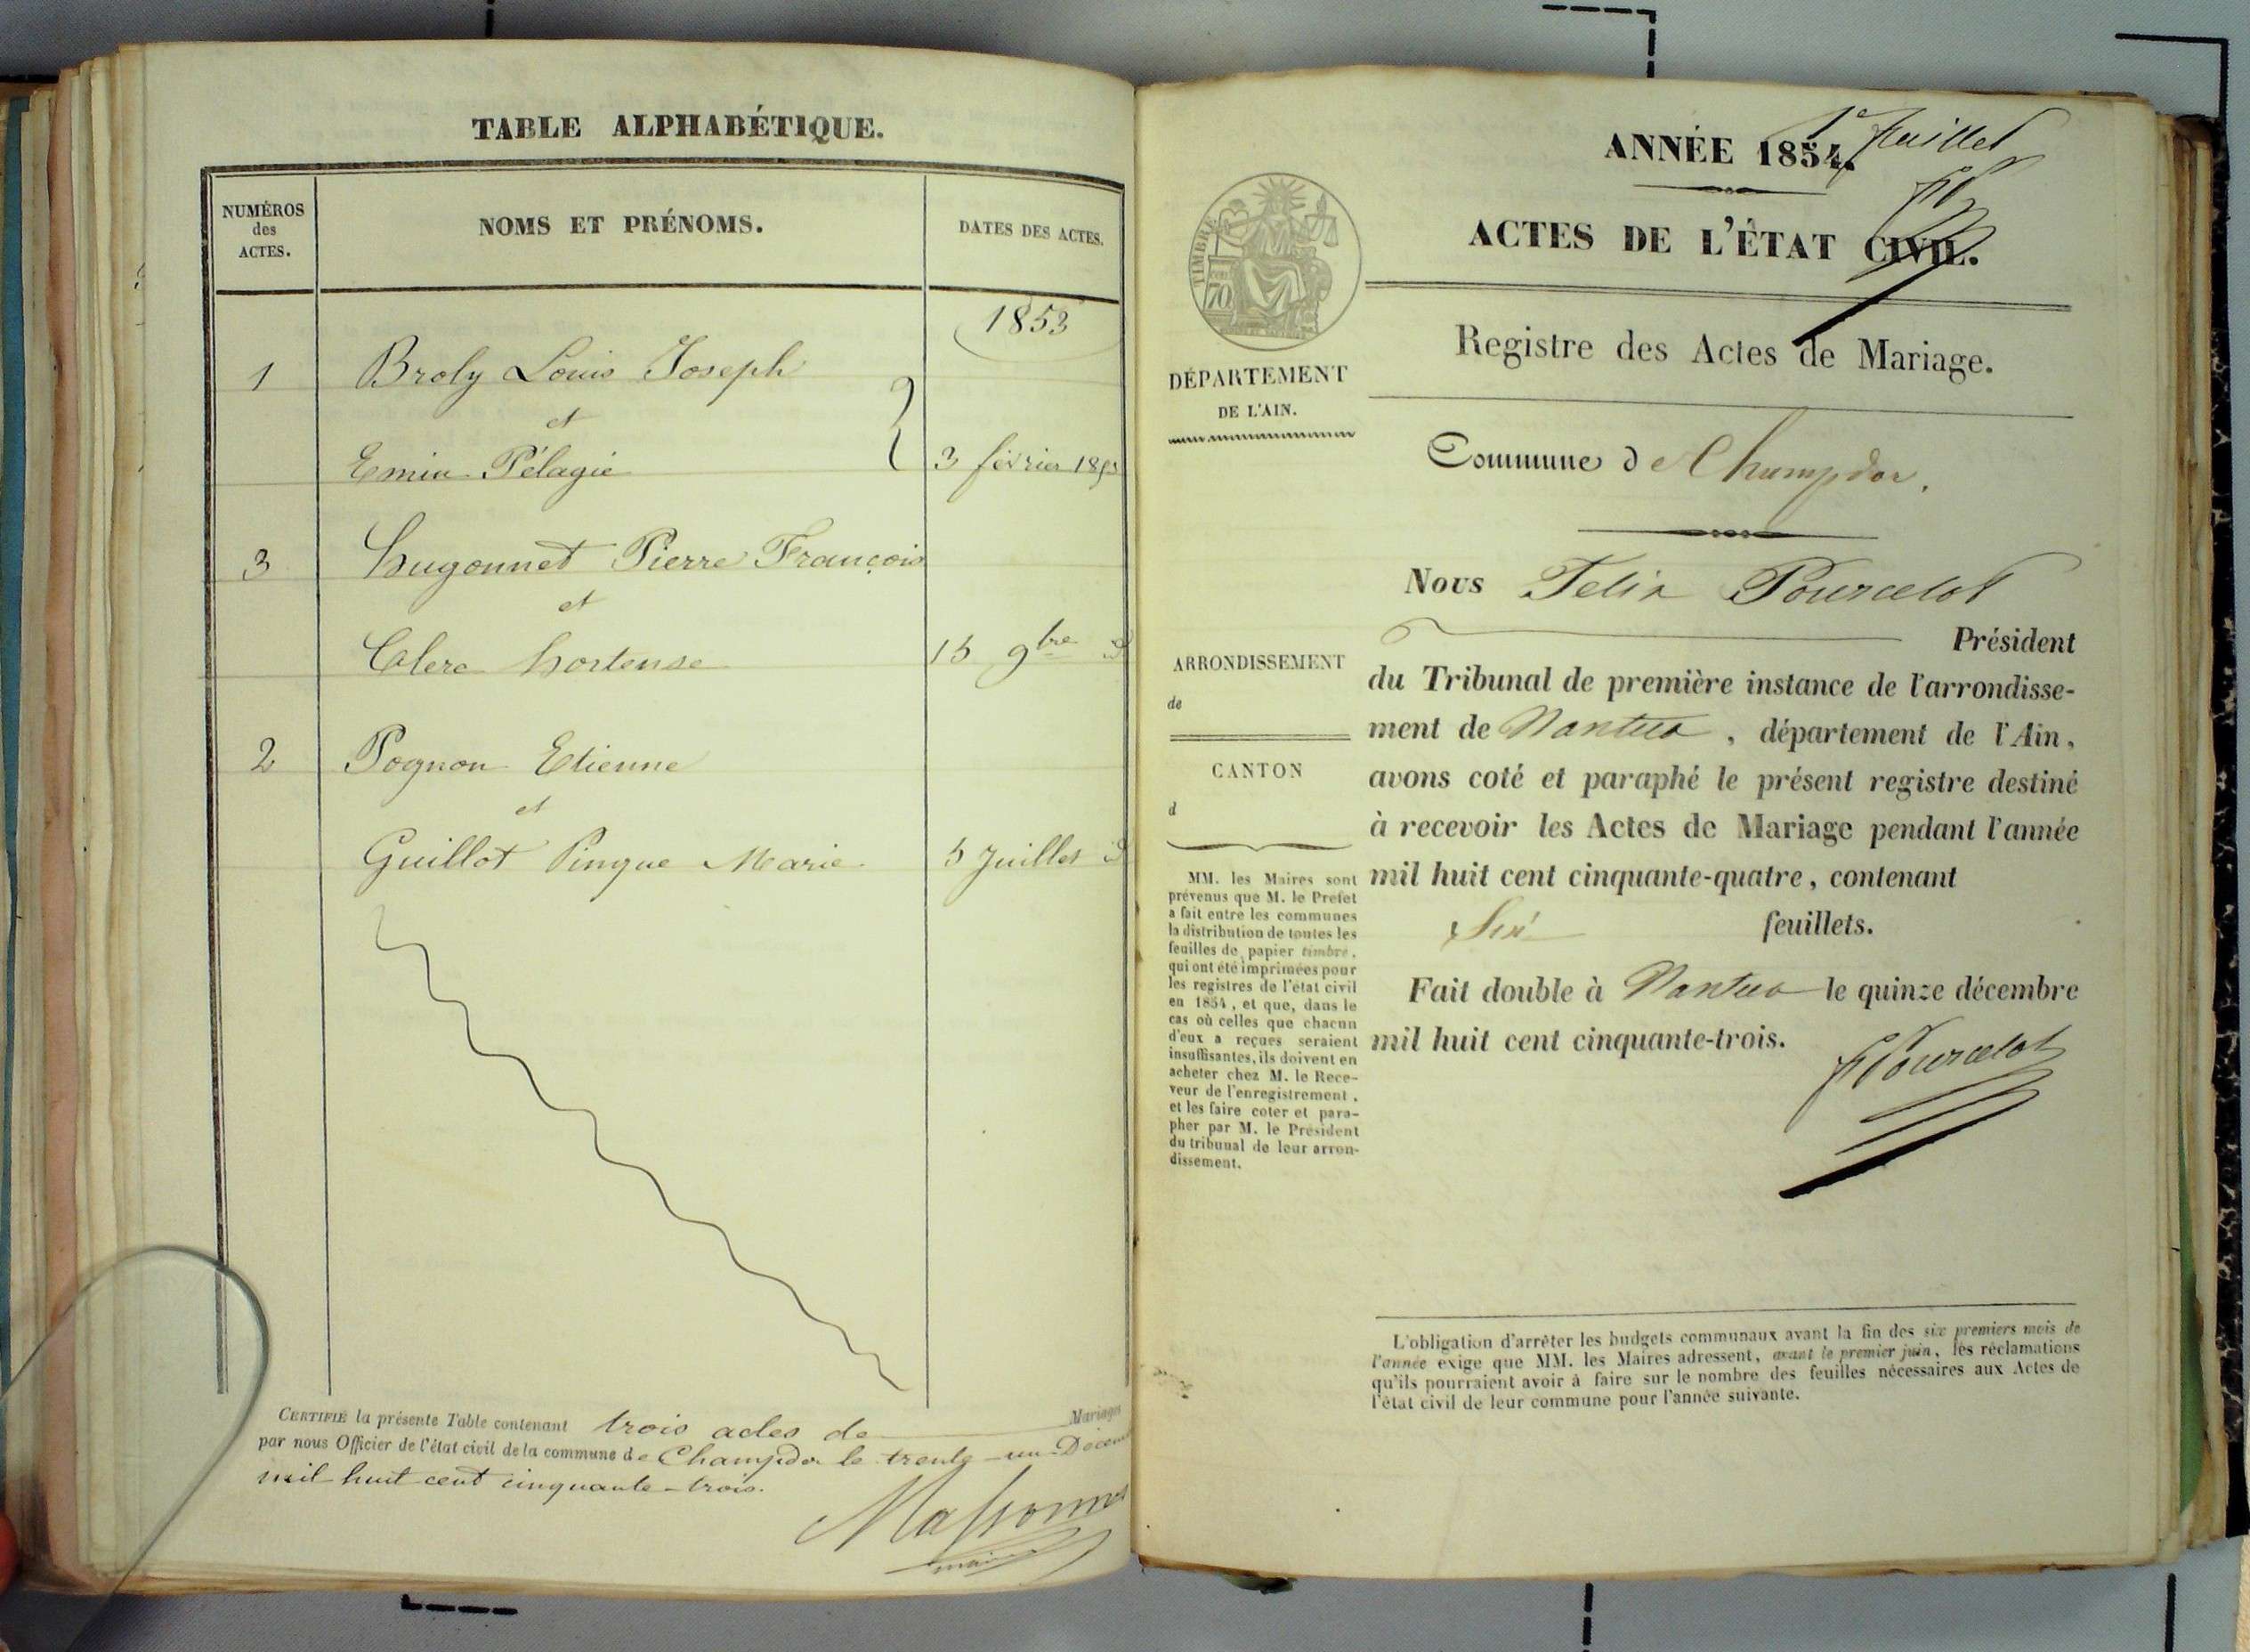 TABLE ALPHABÉTIQUE.
NUMÉROS
des
ACTES.
NOMS ET PRÉNOMS.
DATES DES ACTES.
1853
1 Broly Louis Joseph
et
Emin Pélagie 3 février 1853
3 hugonnet Pierre François
et
Clerc hortense 15 9bre
2 Pognon Etienne
et
Guillot Pingue Marie 5 Juillet
CERTIFIÉ la présente Table contenant trois actes de Mariages
par nous Officier de l'état civil de la commune de Champdor le trente-un Décem
mil huit cent cinquante-trois.
1e feuillet
ANNÉE 1854.
ACTES DE L'ÉTAT CIVIL.
Registre des Actes de Mariage.
TIMBRE
70
DÉPARTEMENT
DE L'AIN.
Commune de Champdor.
Nous Felix Pourcelot
Président
du Tribunal de première instance de l'arrondisse-
ment de Nantua, département de l'Ain,
avons coté et paraphé le présent registre destiné
à recevoir les Actes de Mariage pendant l'année
mil huit cent cinquante-quatre, contenant
Six feuillets.
Fait double à Nantua le quinze décembre
mil huit cent cinquante-trois.
FPourcelot
ARRONDISSEMENT
de
CANTON
d
MM. les Maires sont
prévenus que M. le Préfet
a fait entre les communes
la distribution de toutes les
feuilles de papier timbré,
qui ont été imprimées pour
les registres de l'état civil
en 1854, et que, dans le
cas où celles que chacun
d'eux a reçues seraient
insuffisantes, ils doivent en
acheter chez M. le Rece-
veur de l'enregistrement,
et les faire coter et para-
pher par M. le Président
du tribunal de leur arron-
dissement.
L'obligation d'arrêter les budgets communaux avant la fin des six premiers mois de
l'année exige que MM. les Maires adressent, avant le premier juin, les réclamations
qu'ils pourraient avoir à faire sur le nombre des feuilles nécessaires aux Actes de
l'état civil de leur commune pour l'année suivante.